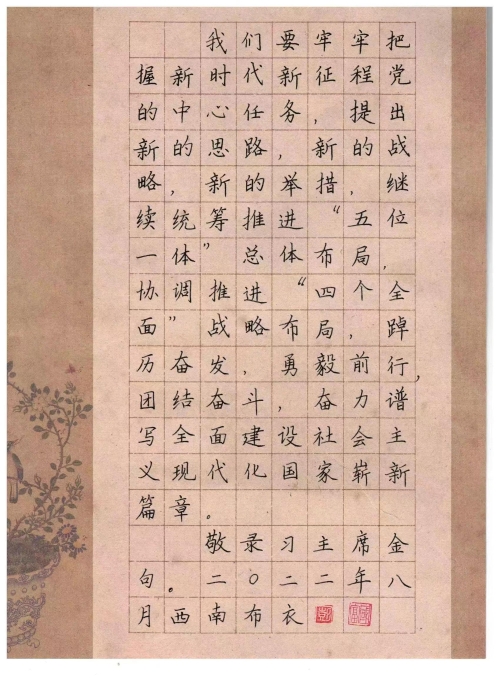 我们要牢牢把
握新时代新征程党
的中心任务，提出
新的思路，新的战
略，新的举措，继
续统筹推进“五位
一体”总体布局，
协调推进“四个全
面”战略布局，踔
历奋发，勇毅前行，
团结奋斗，奋力谱
写全面建设社会主
义现代化国家崭新
篇章。
敬录习主席金
句。二〇二二年八
月西南布衣